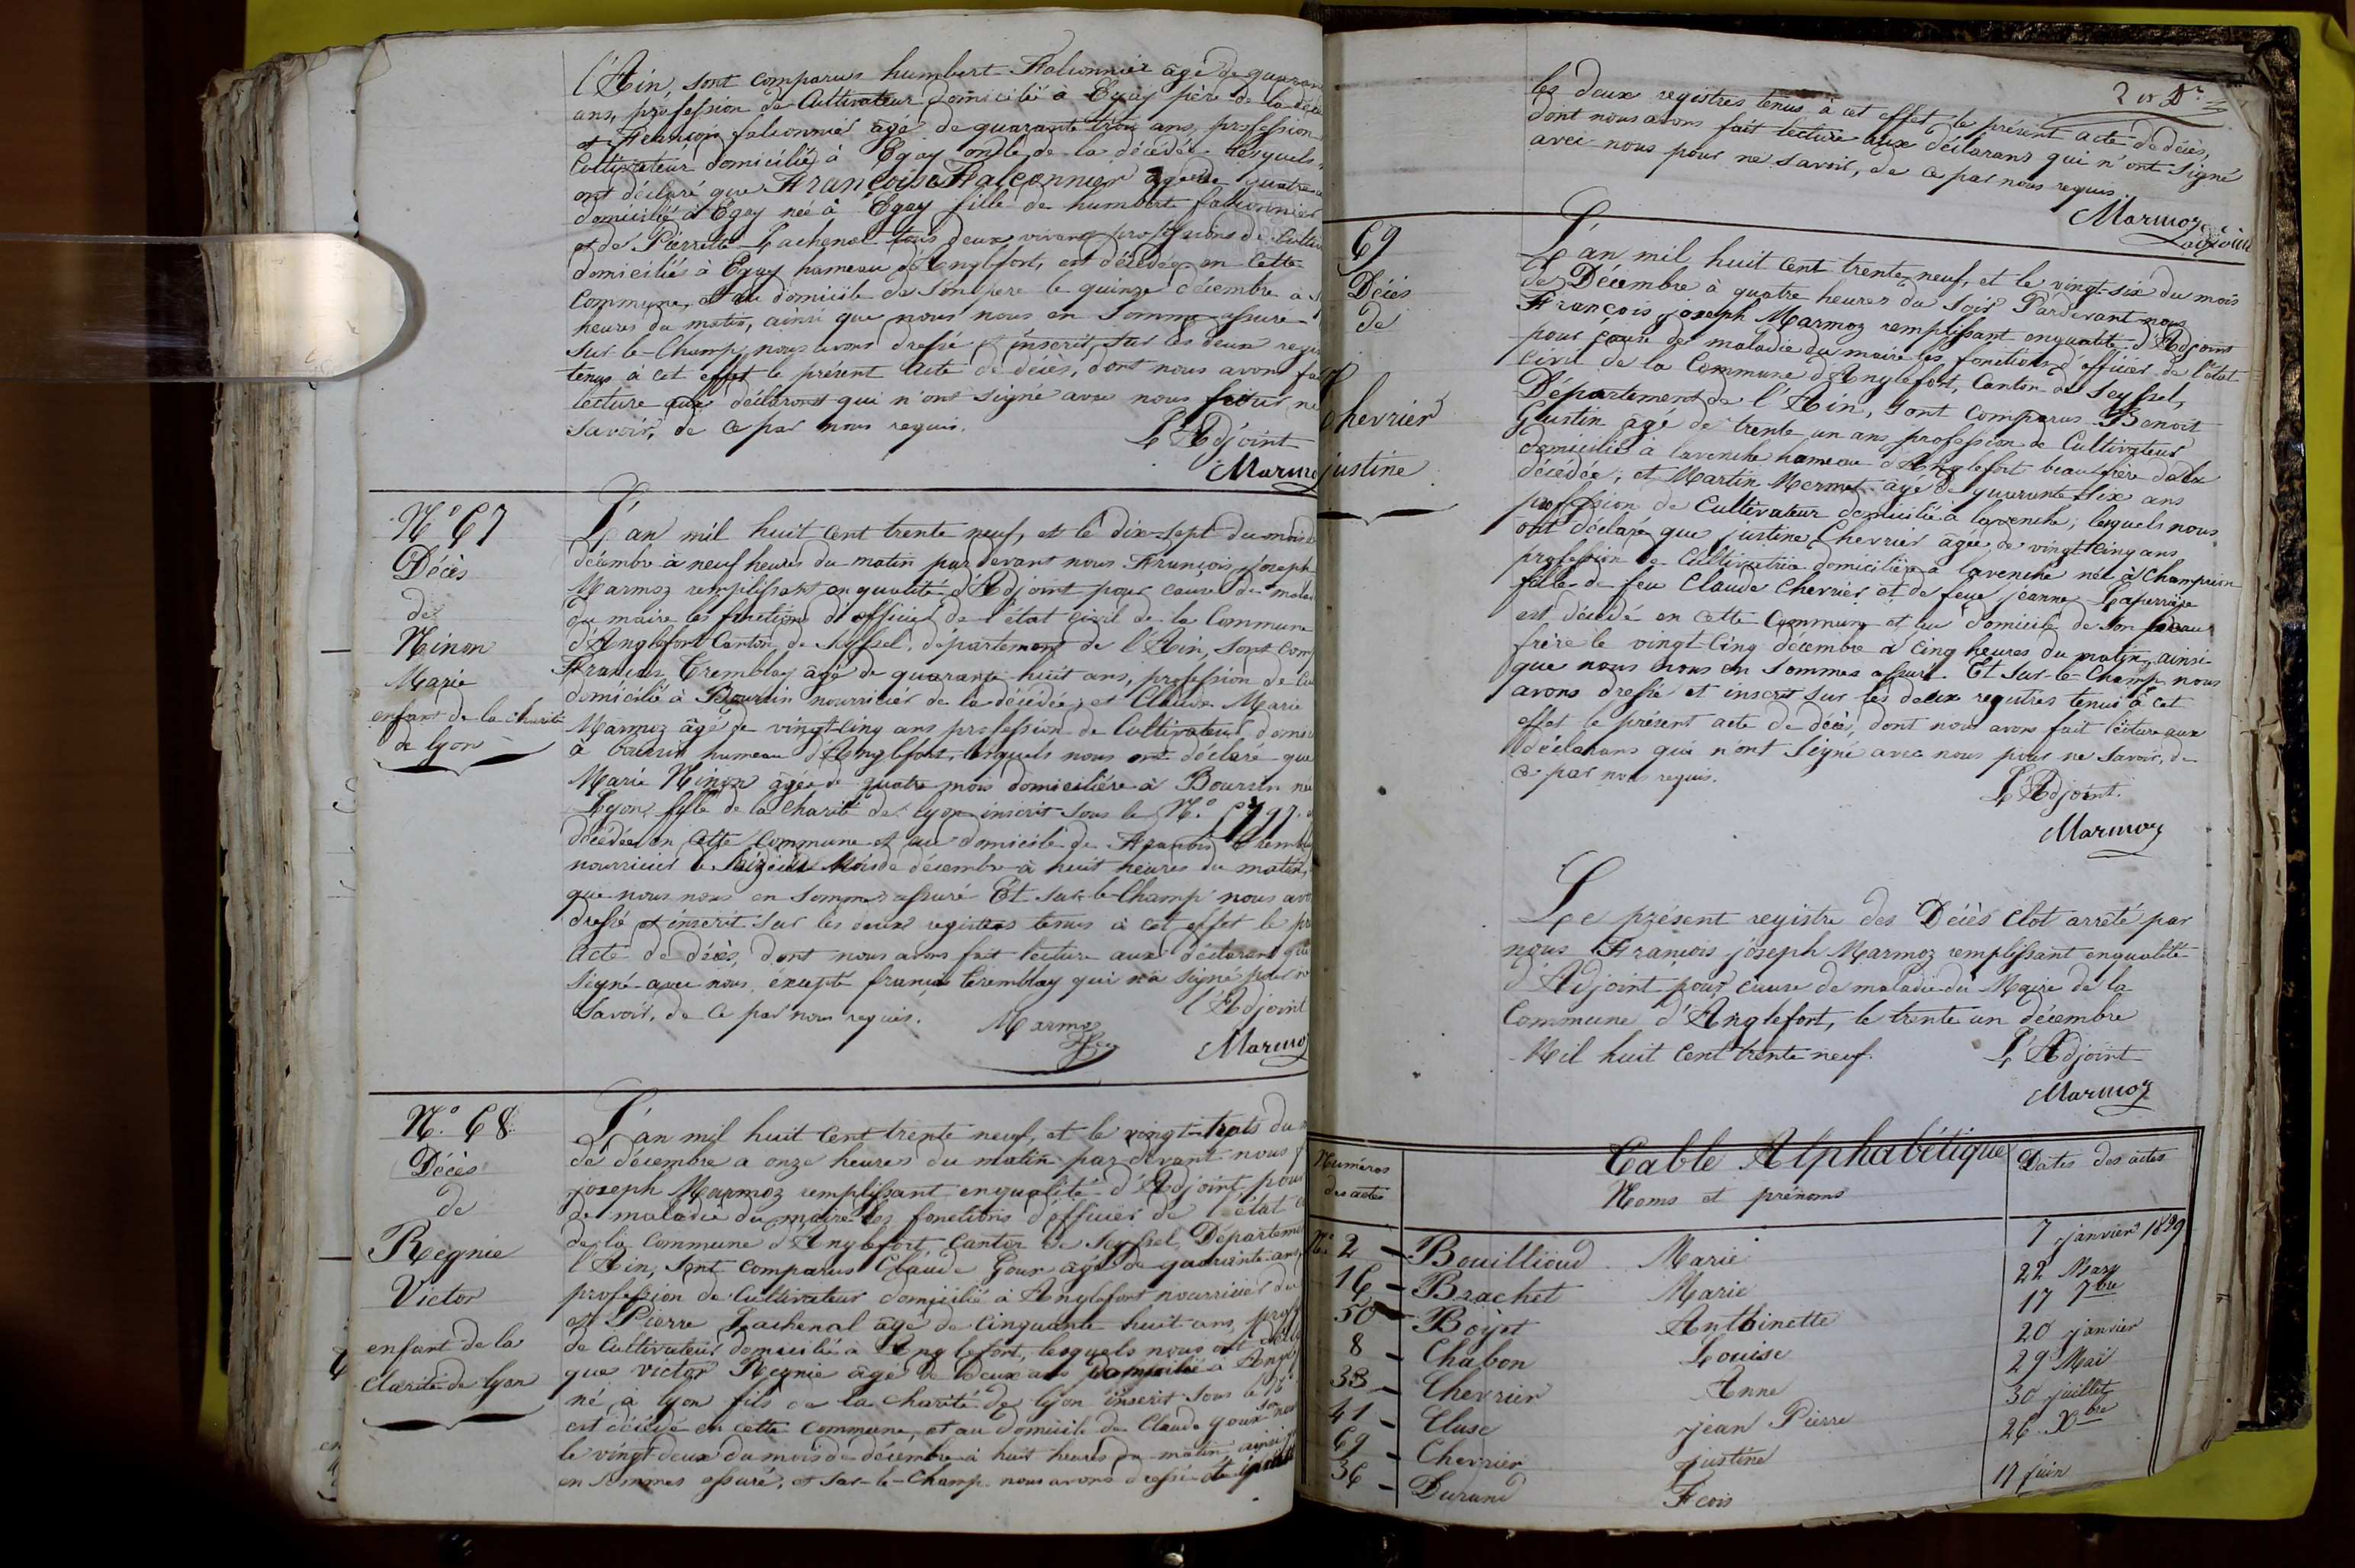 l'Ain, sont comparus humbert Falconnier âgé de quaran
ans, profession de Cultivateur domicilié à Egay père de la décé
et François falconnier âgé de quarante trois ans, profession
Cultivateur domicilié à Egay oncle de la décédée lesquels
ont déclaré que Françoise Falconnier âgée de quatre
domicilié à Egay née à Egay fille de humbert falconnier
et de Pierrette Lachenal tous deux vivans professions de Cultiv
domicilié à Egay hameau d'Anglefort, est décédée en Cette
Commune, et au domicile de son pere le quinze décembre à
heures du matin, ainsi que nous nous en somme assuré
sur-le-Champ nous avons dressé et inscrit sur les deux regis
tenus à cet effet le présent acte de décès, dont nous avons fa
lecture aux déclarans qui n'ont signé avec nous pour ne
savoir, de ce par nous requis.
L'Adjoint
Marmo
N.° 67
Décès
de
Ninon
Marie
enfant de la charité
de lyon
L'an mil huit cent trente neuf, et le dix-sept du mois
décembre à neuf heures du matin pardevant nous François joseph
Marmoz remplissant en qualité d'Adjoint pour cause de mala
du maire les fonctions d'officier de l'état civil de la Commune
d'Anglefort Canton de Seyssel, département de l'Ain, sont com
François Tremblay âgé de quarante-huit ans, profession de Cu
domicilié à Boursin nourricier de la décédée, et Claude Marie
Marmoz âgé de vingt-cinq ans profession de Cultivateur, domic
à boursin hameau d'Anglefort, lesquels nous ont déclaré que
Marie Ninon âgée de quatre mois domiciliére à Boursin né
Lyon fille de la charité de lyon inscrit sous le N.°
décédée en cette Commune et au domicile de François Trembl
nourricier le seizième Mois de décembre à huit heures du matin,
que nous nous en sommes assuré Et sur-le-Champ nous avo
dressé et inscrit sur les deux registres tenus à cet effet le pr
acte de décès, dont nous avons fait lecture aux déclarant qui
signé avec nous, excepté françois tremblay qui n'a signé pour n
savoir, de ce par nous requis.
Marmoz
l'Adjoint
Marmo
N.° 68
Décès
de
Regnie
Victor
enfant de la
Charité de lyon
L'an mil huit cent trente neuf, et le vingt-trois du
de décembre a onze heures du matin par devant nous f
joseph Marmoz remplissant enqualité d'Adjoint, pour
de maladie du maire les fonctions d'officier de l'état
de la Commune d'Anglefort, Canton de Seyssel, Départeme
l'Ain, sont comparus Claude Goux âgé de quarante ans,
profession de Cultivateur domicilié à Anglefort nourricier du
et Pierre Lachenal âgé de Cinquante huit ans, prof
de Cultivateur domicilié à Anglefort, lesquels nous ont décla
que victor Regnie âgé de deux ans domicilié à Angl
né, à lyon fils de la charité de lyon inscrit sous le N°
est décédé en cette Commune, et au domicile de Claude goux son nou
le vingt deux du mois de décembre à huit heures du matin, ainsi
en sommes assuré, et sur-le-Champ nous avons dressé
les deux registres tenus à cet effet le présent acte de décès,
dont nous avons fait lecture aux déclarans qui n'ont signé
avec nous pour ne savoir, de ce par nous requis.
Marmoz
L'adjoint
69
Décès
de
Chevrier
justine
L'an mil huit cent trente neuf, et le vingt-six du mois
de Décembre à quatre heures du Soir Pardevant nous
François joseph Marmoz remplissant enqualité d'Adjoint
pour cause de maladie du maire les fonctions d'officier de l'état
civil de la Commune d'Anglefort, Canton de Seyssel,
Département de l'Ain, sont comparus Benoit
Gustin âgé de trente un ans profession de Cultivateur
domicilié à lavenche hameau d'Anglefort beaufrère de la
décédée, et Martin Mermet âgé de quarante six ans
profession de Cultivateur domicilié à lavenche, lesquels nous
ont déclaré que justine Chevrier âgée de vingt-cinq ans
profession de Cultivatrice domiciliée à lavenche née à Champrion
fille de feu Claude Chevrier et de feue jeanne Laperrière
est décédé en cette Commune et au domicile de son beau
frère le vingt Cinq décembre à cinq heures du matin, ainsi
que nous nous en sommes assuré. Et sur-le-Champ nous
avons dressé et inscrit sur les deux registres tenus à cet
effet le présent acte de décès, dont nous avons fait lecture aux
déclarans qui n'ont signé avec nous pour ne savoir, de
ce par nous requis.
L'Adjoint.
Marmoz
Le présent registre des Décès clot arrêté par
nous François joseph Marmoz remplissant enqualité
d'Adjoint pour cause de maladie du Maire de la
Commune d'Anglefort, le trente un décembre
Mil huit Cent trente neuf.
L'Adjoint
Marmoz
Table Alphabétique
Numéros des actes
Noms et prénoms
Dates des actes
N° 2 - Bouillioud Marie 7 janvier 1839
16 - Brachet Marie 22 Mars
50 - Boyet Anthoinette 17 7bre
8 - Chabon Louise 20 janvier
33 - Chevrier Anne 29 Mai
41 - Cluse jean Pierre 30 juillet
69 - Chevrier justine 26 Xbre
36 - Durand Fcois 17 juin